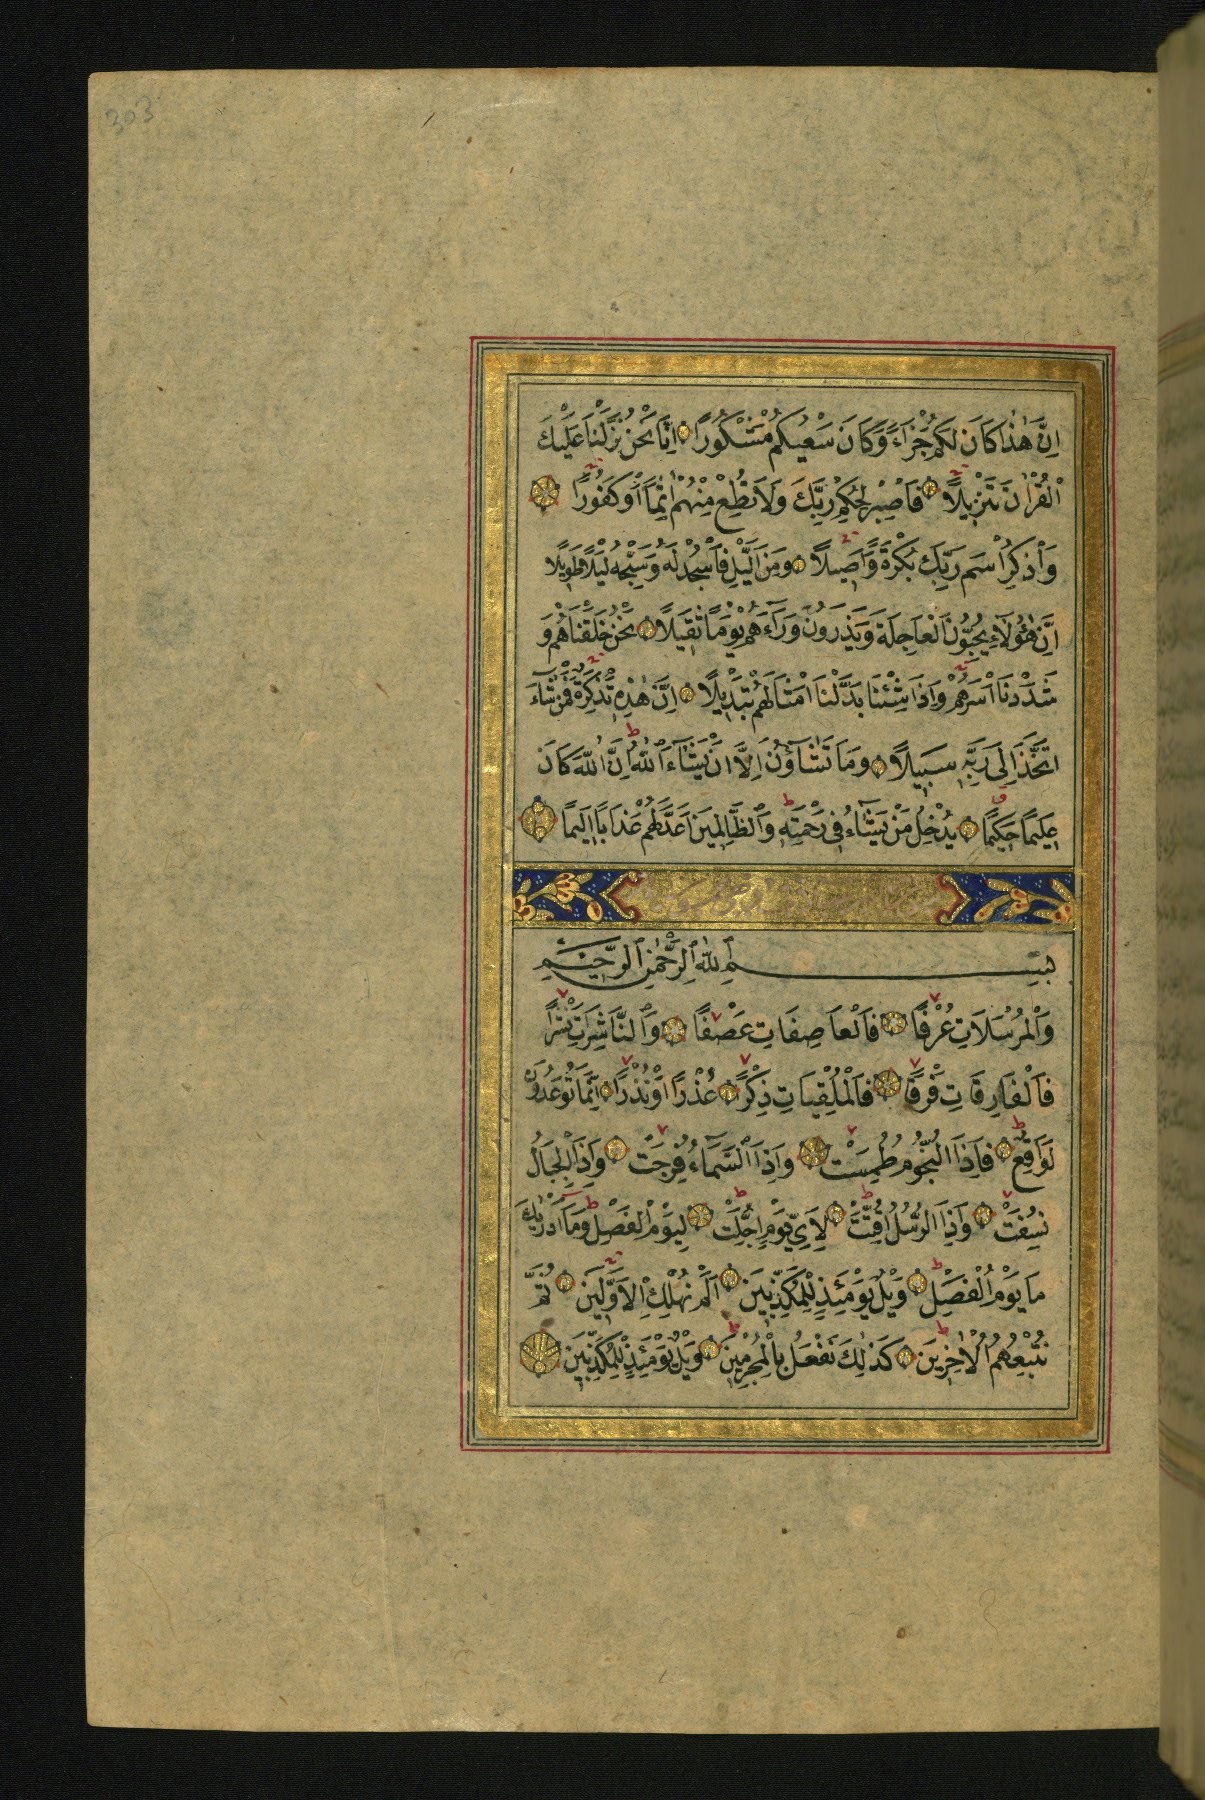 303
اِنَّ هٰذَا كَانَ لَكُمْ جَزَاءً وَكَانَ سَعْيُكُمْ مَشْكُورًا اِنَّا نَحْنُ نَزَّلْنَا عَلَيْكَ
الْقُرْاٰنَ تَنْزِيلًا فَاصْبِرْ لِحُكْمِ رَبِّكَ وَلَا تُطِعْ مِنْهُمْ اٰثِمًا اَوْ كَفُورًا
وَاذْكُرِ اسْمَ رَبِّكَ بُكْرَةً وَاَصِيلًا وَمِنَ الَّيْلِ فَاسْجُدْ لَهُ وَسَبِّحْهُ لَيْلًا طَوِيلًا
اِنَّ هٰؤُلَاءِ يُحِبُّونَ الْعَاجِلَةَ وَيَذَرُونَ وَرَاءَهُمْ يَوْمًا ثَقِيلًا نَحْنُ خَلَقْنَاهُمْ وَ
شَدَدْنَا اَسْرَهُمْ وَاِذَا شِئْنَا بَدَّلْنَا اَمْثَالَهُمْ تَبْدِيلًا اِنَّ هٰذِهِ تَذْكِرَةٌ فَمَنْ شَاءَ
اتَّخَذَ اِلٰى رَبِّهِ سَبِيلًا وَمَا تَشَاؤُنَ اِلَّا اَنْ يَشَاءَ اللّٰهُ اِنَّ اللّٰهَ كَانَ
عَلِيمًا حَكِيمًا يُدْخِلُ مَنْ يَشَاءُ فِى رَحْمَتِهِ وَالظَّالِمِينَ اَعَدَّ لَهُمْ عَذَابًا اَلِيمًا
بِسْمِ اللّٰهِ الرَّحْمٰنِ الرَّحِيمِ
وَالْمُرْسَلَاتِ عُرْفًا فَالْعَاصِفَاتِ عَصْفًا وَالنَّاشِرَاتِ نَشْرًا
فَالْفَارِقَاتِ فَرْقًا فَالْمُلْقِيَاتِ ذِكْرًا عُذْرًا اَوْ نُذْرًا اِنَّمَا تُوعَدُونَ
لَوَاقِعٌ فَاِذَا النُّجُومُ طُمِسَتْ وَاِذَا السَّمَاءُ فُرِجَتْ وَاِذَا الْجِبَالُ
نُسِفَتْ وَاِذَا الرُّسُلُ اُقِّتَتْ لِاَىِّ يَوْمٍ اُجِّلَتْ لِيَوْمِ الْفَصْلِ وَمَا اَدْرٰيكَ
مَا يَوْمُ الْفَصْلِ وَيْلٌ يَوْمَئِذٍ لِلْمُكَذِّبِينَ اَلَمْ نُهْلِكِ الْاَوَّلِينَ ثُمَّ
نُتْبِعُهُمُ الْاٰخِرِينَ كَذٰلِكَ نَفْعَلُ بِالْمُجْرِمِينَ وَيْلٌ يَوْمَئِذٍ لِلْمُكَذِّبِينَ